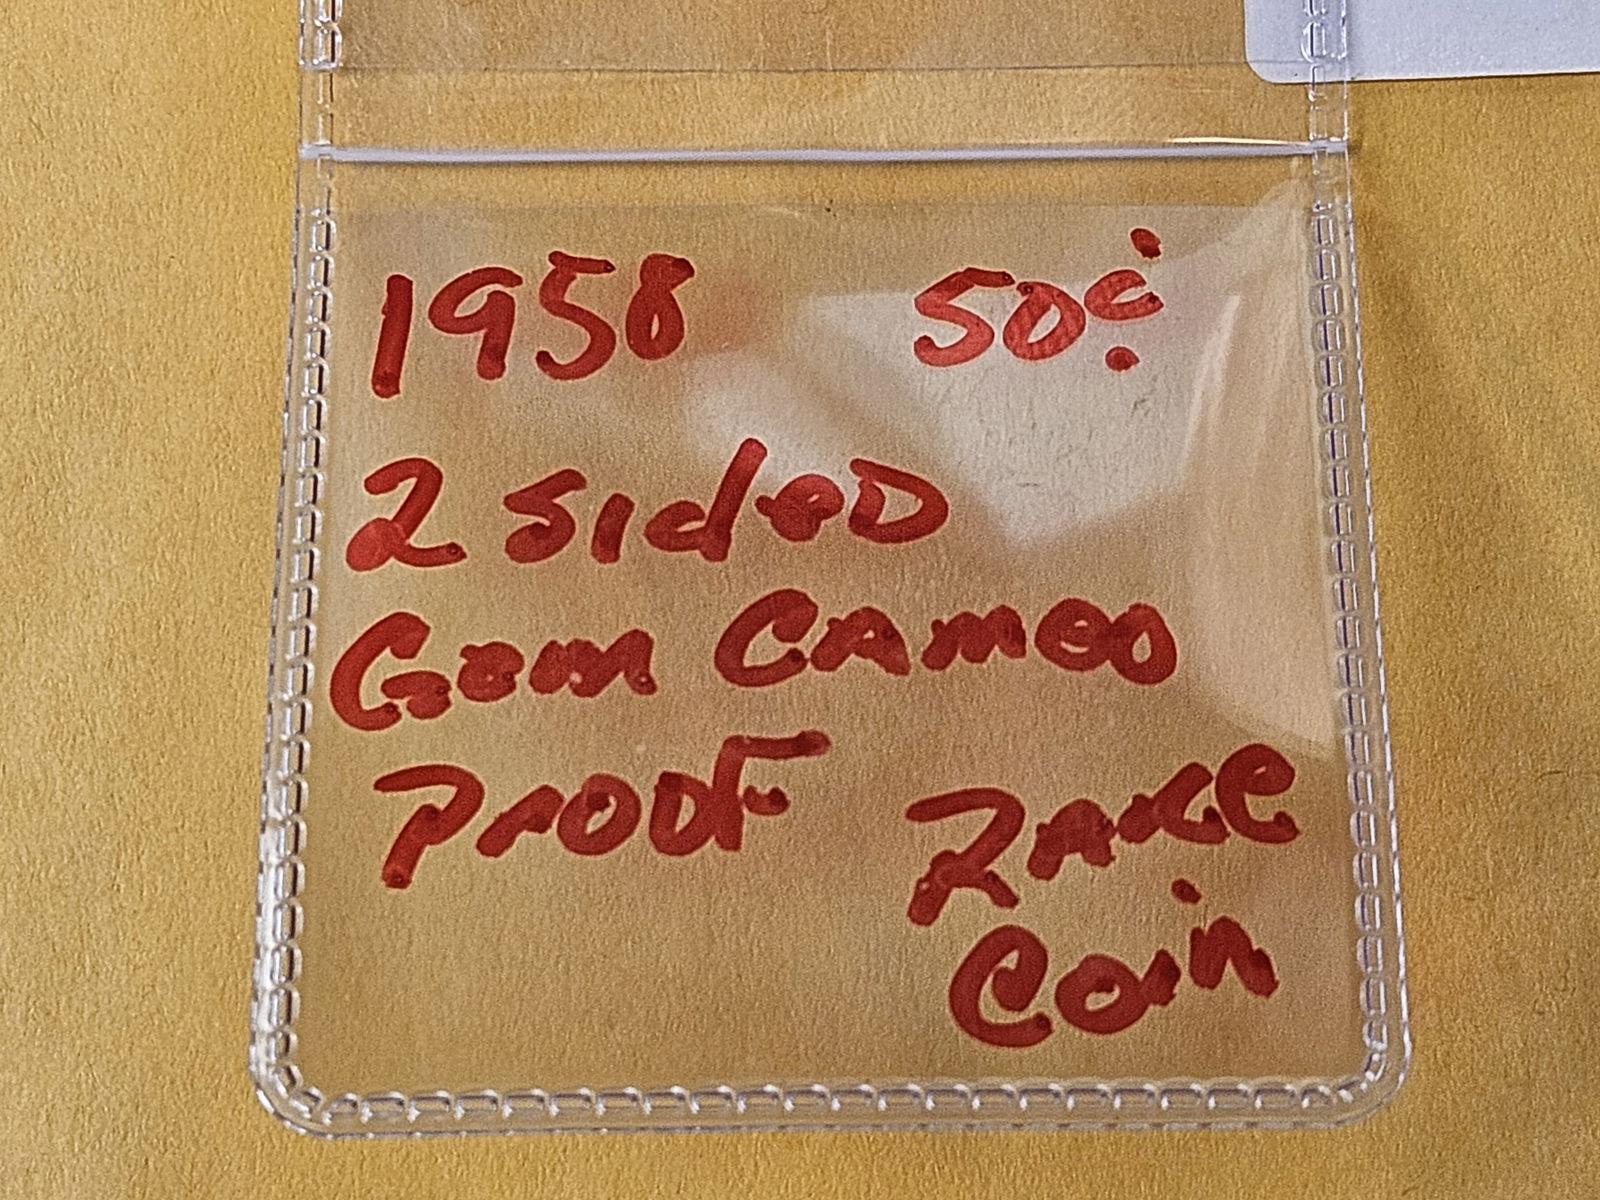 1958 50¢
2 sided
Gem Cameo
Proof Rare
Coin